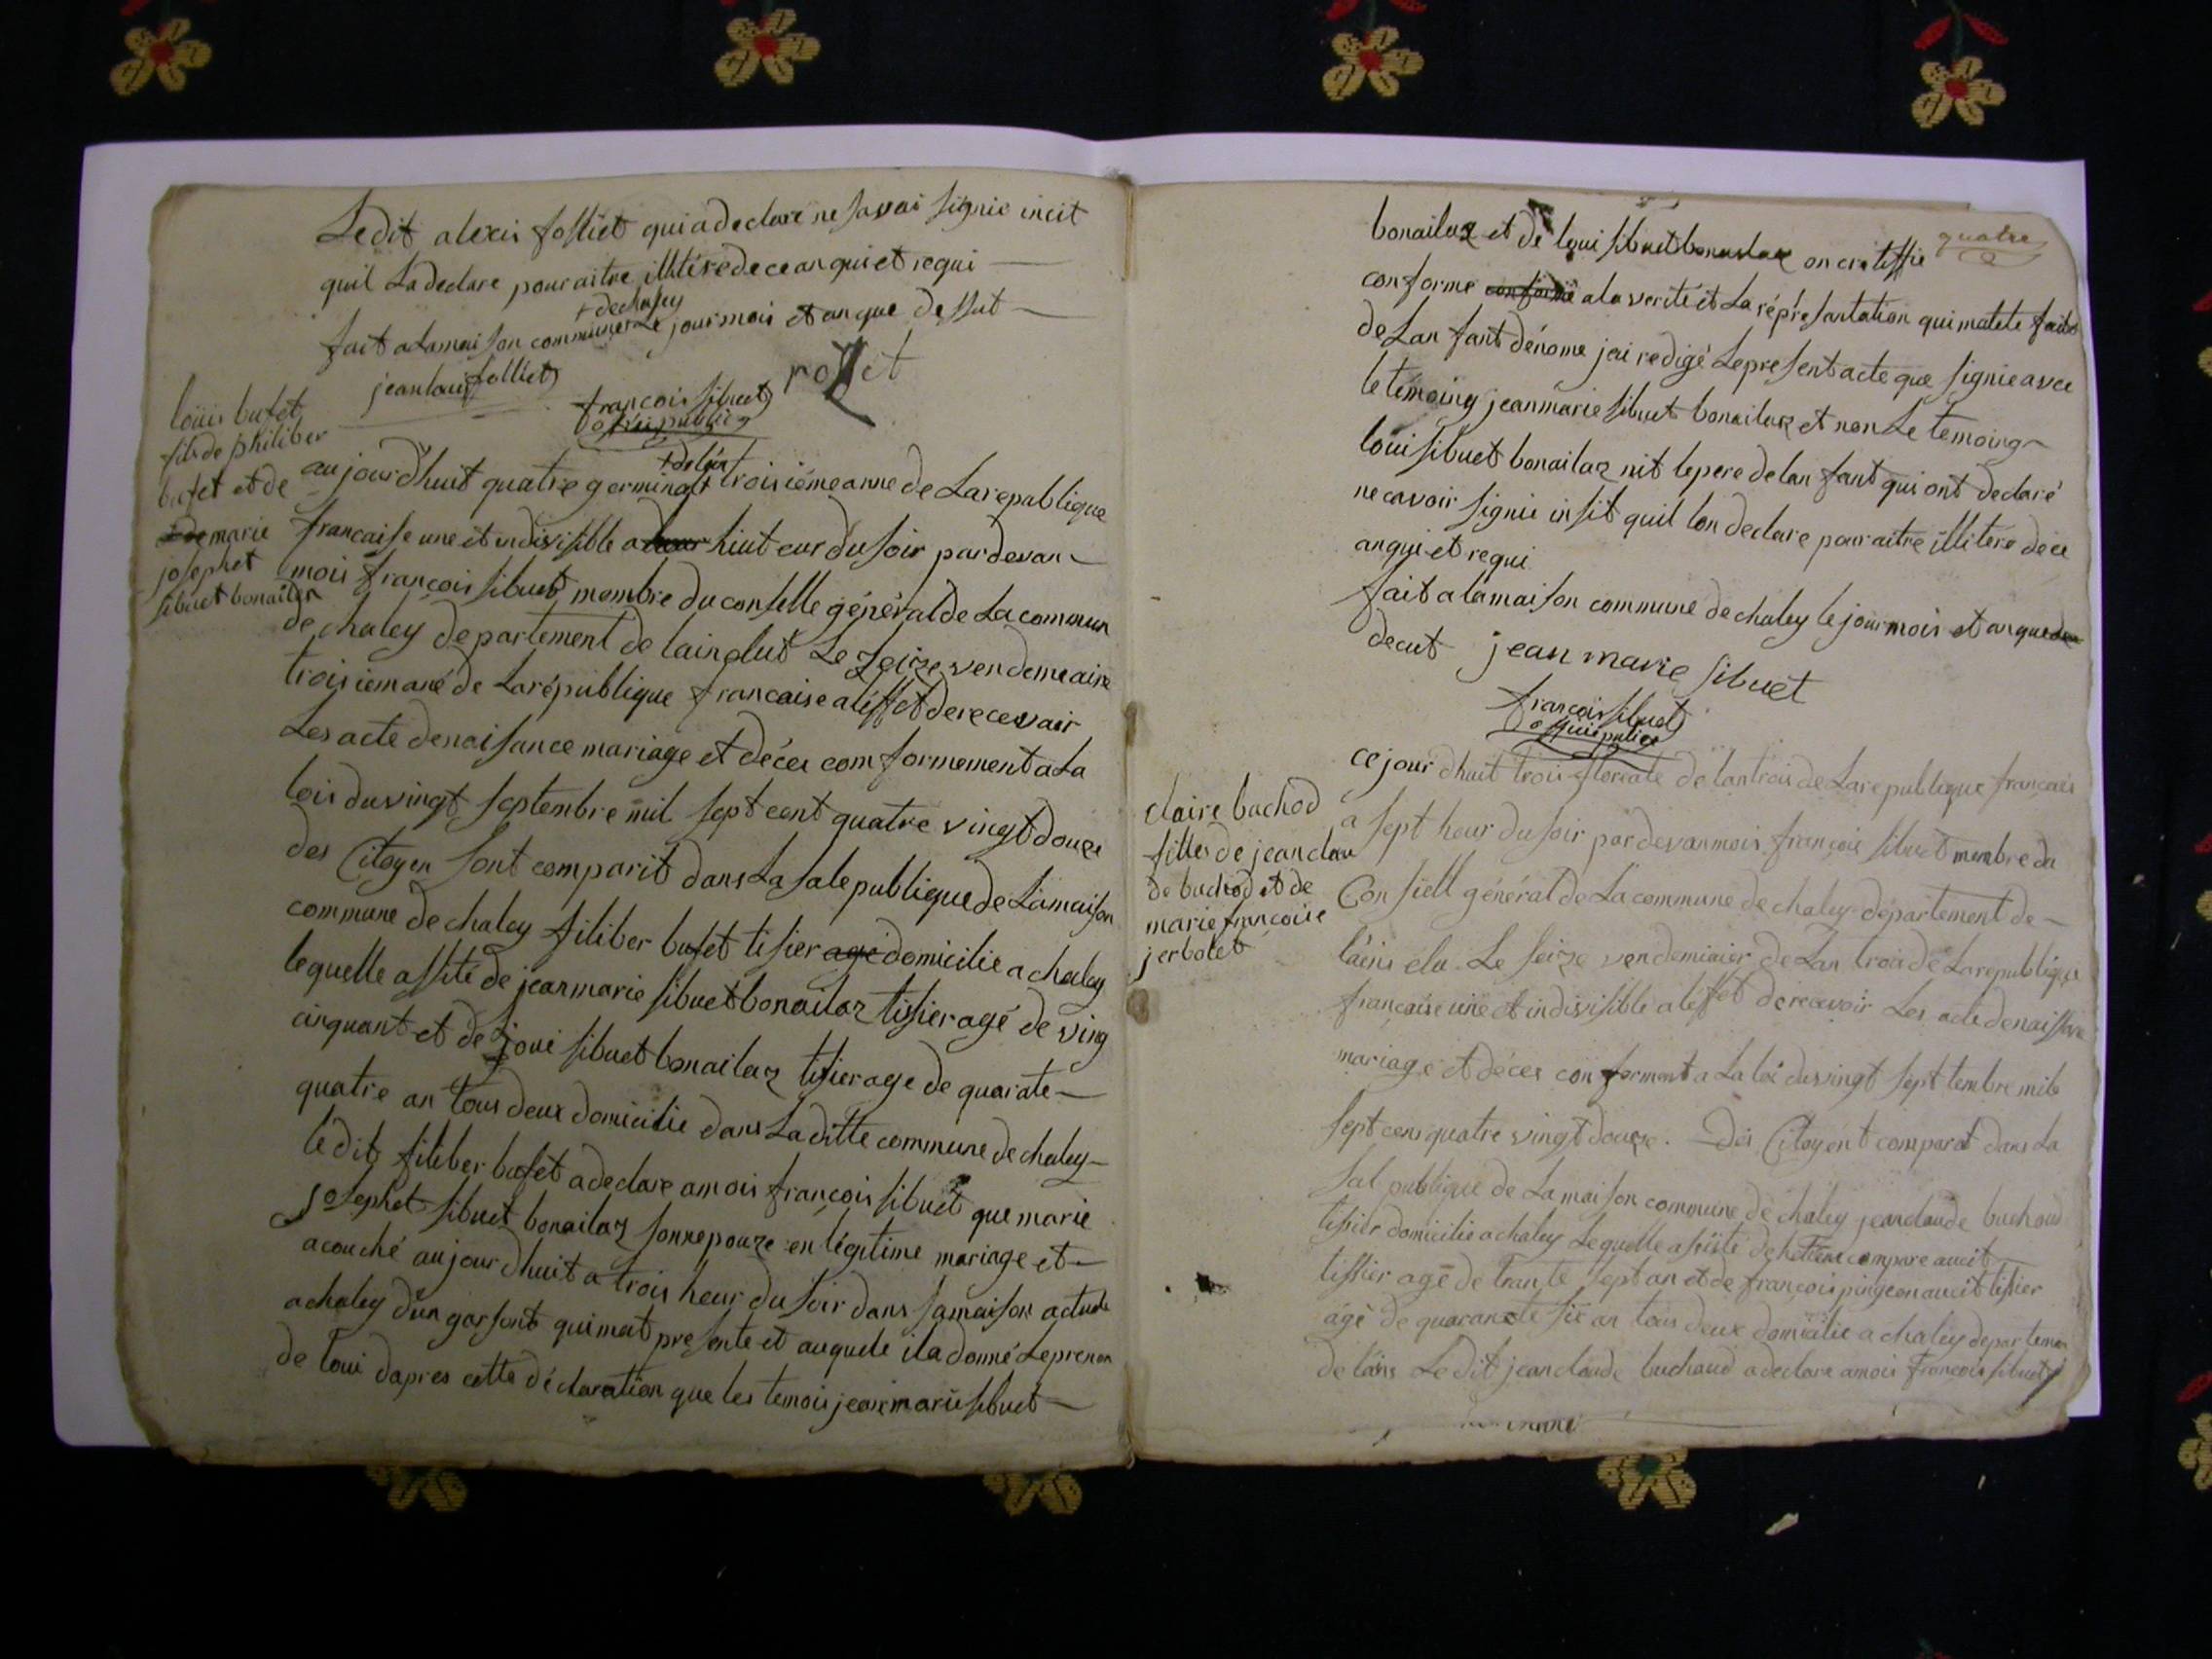 Ledit alexis folliet qui a declaré ne savoi signie incit
quil La declare pour aitre illitére de ce anquiet requi
+ de chaley
fait a Lamaison commune + Le jour mois et an que dessut
jean loui folliet
francois sibuet
officié public
louis bufet
fils de philiber
bufet et de
marie
josephet
sibuet bonailar
+ de l'an
aujourd'huit quatre germinal + troisiéme anne de La republique
francaise une et indivisible a huit eur du soir par devan
mois francois sibuet membre du conselle général de La commun
de chaley departement de lain elut Le zeize vendemeaire
troisieme ané de La république francaise a léffet de recevoir
Les acte denaisance mariage et décer comformement a La
lois du vingt septembre mil sept cent quatre vingt douze
des Citoyen sont comparit dans La sale publique de Lamaison
commune de chaley filiber bufet tisier agé domicilie a chaley
lequelle assité de jean marie sibuet bonailaz tissier agé de ving
cinquant et de loui sibuet bonailaz tisier age de quarate
quatre an tous deux domicilie dans La ditte commune de chaley
le dit filiber bufet a declare a mois francois sibuet que marie
josephet sibuet bonailaz sonnepouze en légitime mariage et
acouché aujourdhuit a trois heur du soir dans sa maison actuele
a chaley dun garsont qui mat presente et auquele il a donné Le prenon
de loui dapres cette déclaration que les temois jean marie sibuet
quatre
bonailaz et de loui sibuet bonailaz on certiffie
conforme conforme a la verité et La répresantation qui matete faite
de Lanfant dénomé jai redigé Le present acte que signie avec
le témoing jean marie sibuet bonailaz et non Le temoing
loui sibuet bonailaz nit le pere de lanfant qui ont declaré
ne cavoir signie insit quil lon declare pour aitre illitere de ce
anqui et requi
fait a la maison commune de chaley le jour mois et an que
decut jean marie sibuet
francois sibuet
officié public
claire buchod
filles de jean clau
de buchod et de
marie francoise
jerbolet
ce jourdhuit trois floreale de lan trois de La republique francais
a sept heur du soir par devan mois francois sibuet membre du
Consiell général de La commune de chaley departement de
láins elu. Le seize vendemiaier de Lan trois de La republique
francaise une et indivisible a léffet de recevoir Les acte denaissance
mariage et décer conforment a La loi du vingt septtembre mile
sept cens quatre vingt douze. Des Citoyent comparet dans La
sal publique de La maison commune de chaley jean claude buchod
tisier domicilie a chaley Le quelle asisté de
tissier agé de trante sept an et de francois pingeon tisier
ágé de quarante sie an tous deux domicilie a chaley departemen
de láins Le dit jean claude buchaud a declare a mois francois sibuet